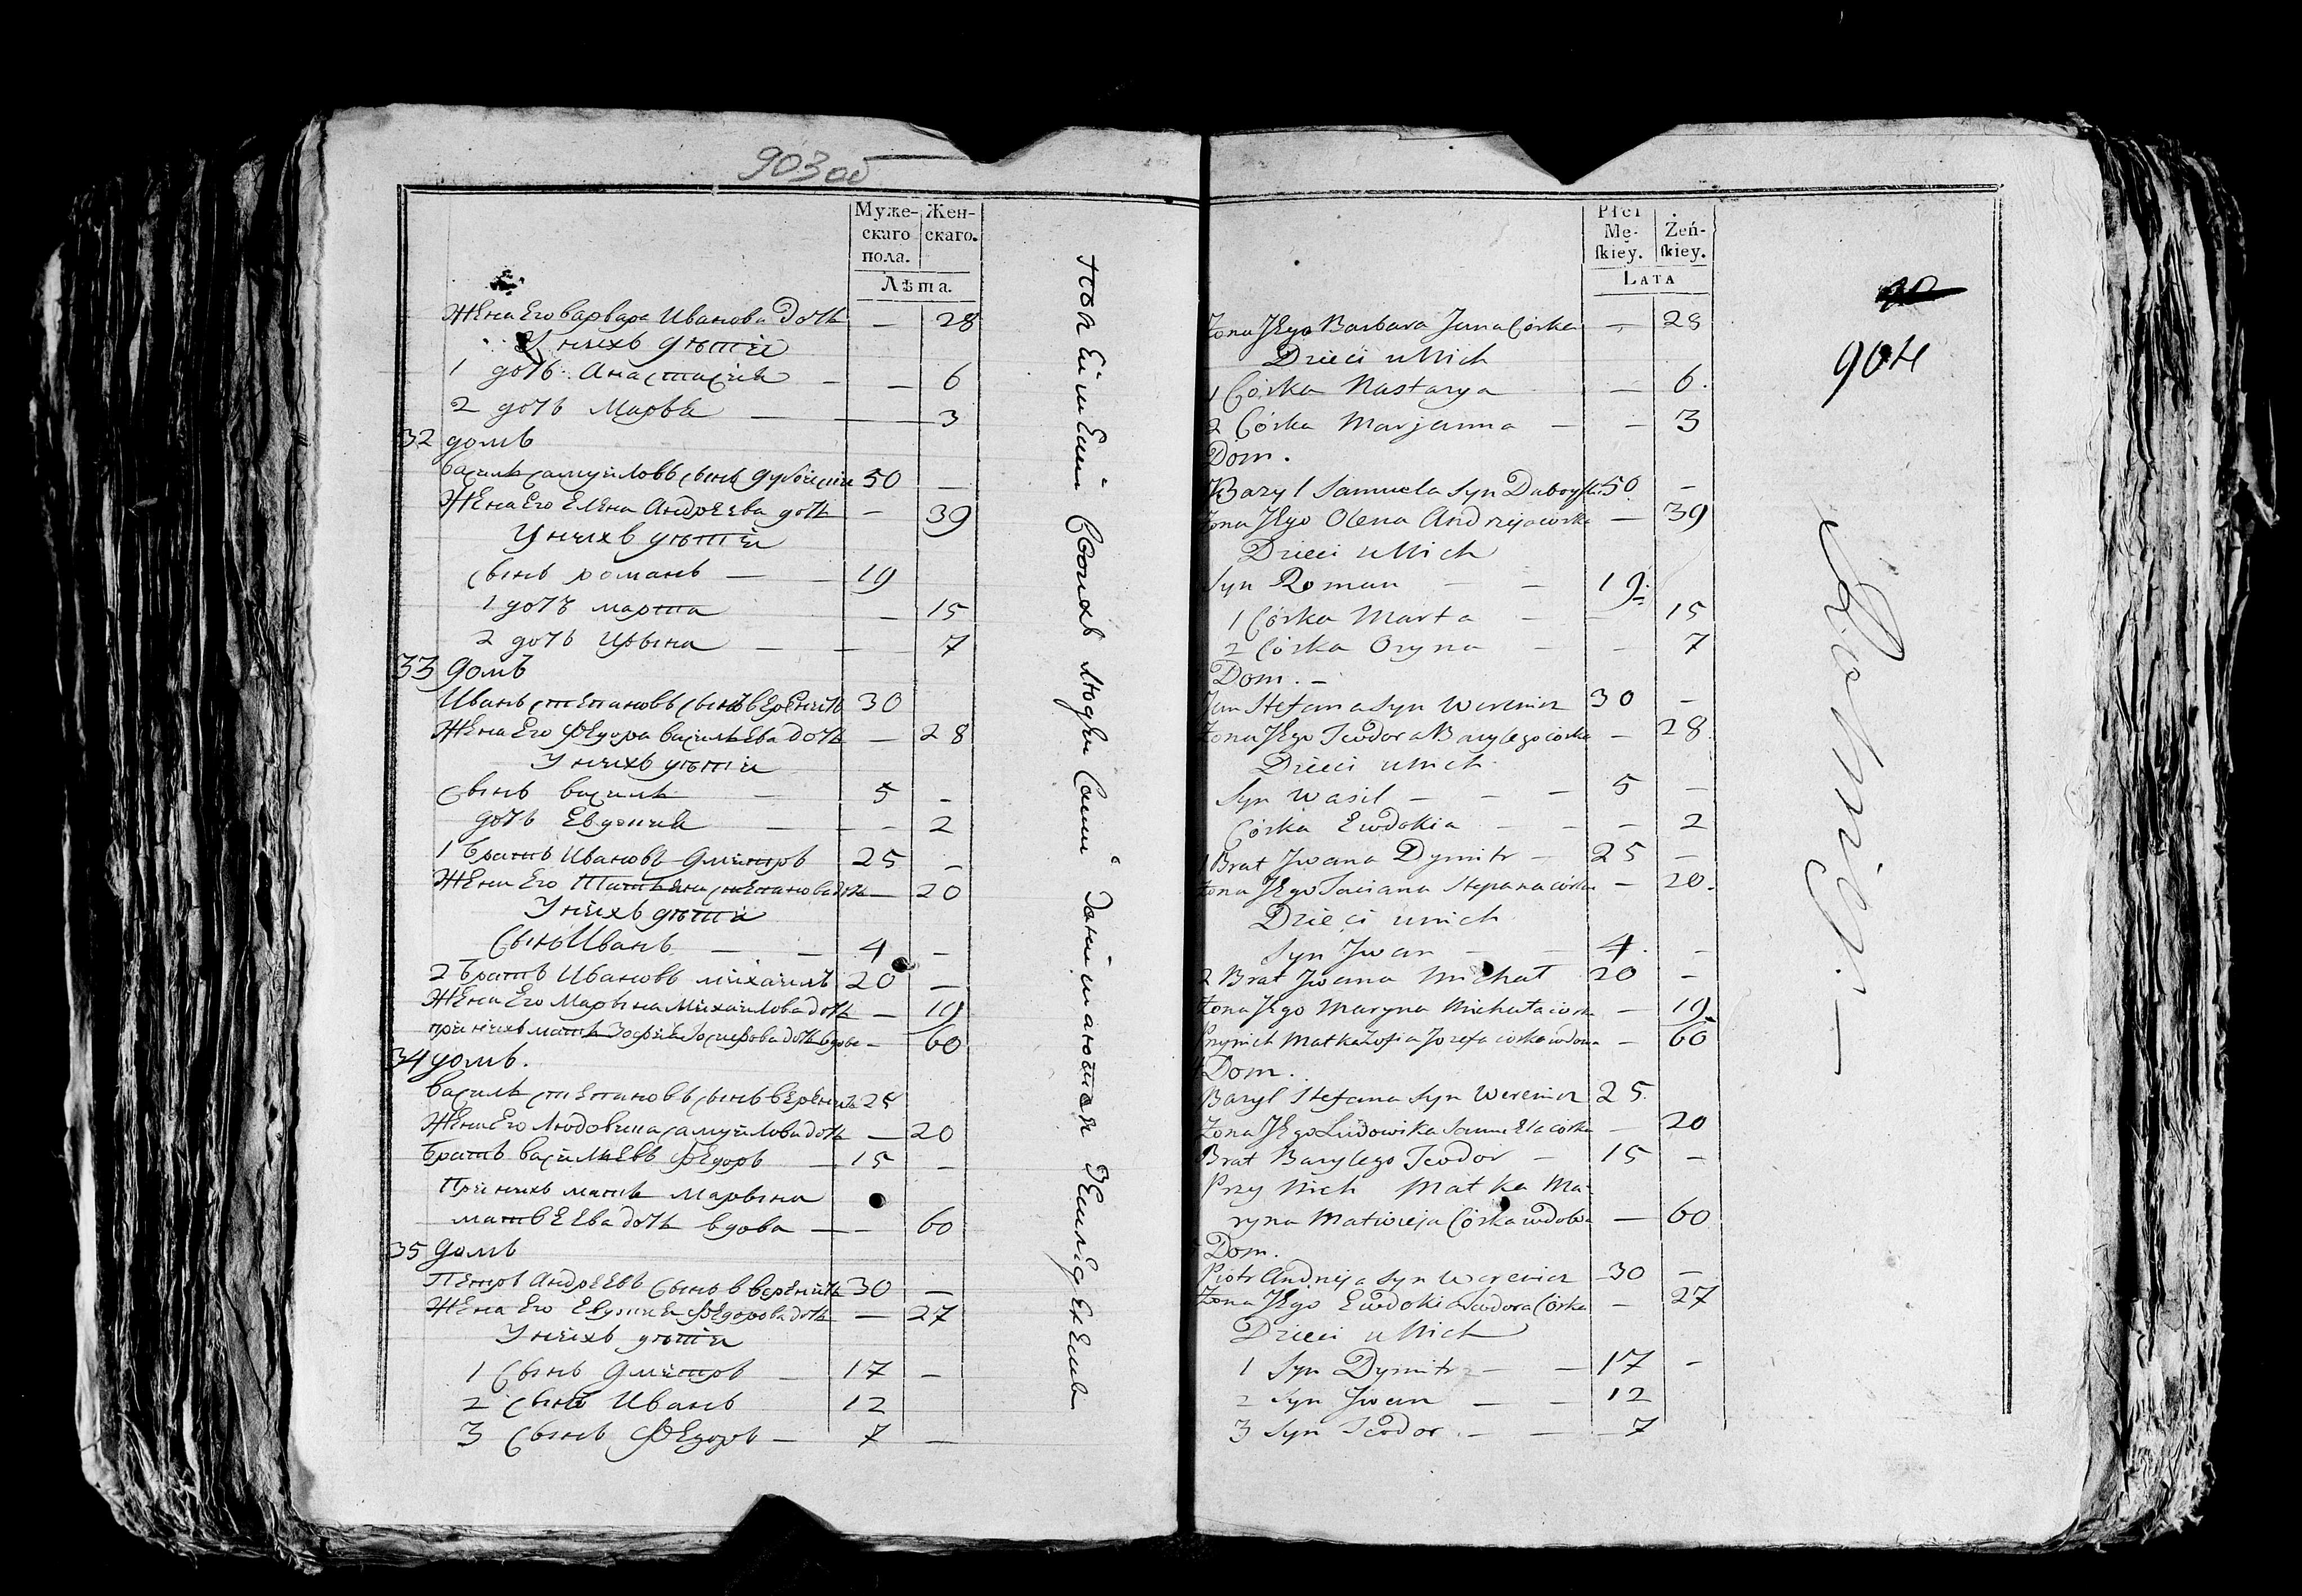 903 об
Муже- Жен-
скаго скаго.
пола.
Лѣта.
Жена Его варвара Иванова дочь — 28
У нихъ дѣти
1 дочь Анастасия — — 6
2 дочь Марья — — 3
32 домъ
василь самуиловъ сынъ 50 —
Жена Его Елена Андреева дочь — 39
У нихъ дѣти
сынъ романъ — — 19
1 дочъ марта — 15
2 дочь Ирына — — 7
33 домъ
Иванъ степановъ сынъ вереничъ 30
Жена Его Федора васильева дочь — 28
У нихъ дѣти
сынъ василь — 5 —
дочь Евдокия — — — 2
1 братъ Ивановъ дмитръ 25 —
Жена Его Татьяна степанова дочь — 20
У нихъ дѣти
сынъ Иванъ — — 4 —
2 братъ Ивановъ михаилъ 20 —
Жена Его Марына Михаилова дочь — 19
при нихъ мать Зофия Iосифова дочь вдова — 60
34 домъ.
василь степановъ сынъ вереничъ 25
Жена Его Людовика самуилова дочь — 20
братъ васильевъ Федоръ — 15 —
При нихъ мать Марына
матвеева дочь вдова — — 60
35 домъ
Петръ Андреевъ сынъ вереничъ 30 —
Жена Его Евдокия Федорова дочь — 27
У нихъ дѣти
1 сынъ дмитръ — 17 —
2 сынъ Иванъ 12
3 сынъ Федоръ — 7 —
своихъ людей сами занимаются земледелемъ
Płci
Mę- Żeń-
ſkiey. ſkiey.
LATA
904
Żona Jego Barbara Jana Córka — 28
Dzieci u Nich
1 Córka Nastazya — 6.
2 Córka Marjanna — — 3
Dom.
Bazyl Samuela Syn 50 —
Żona Jego Olena Andrzeja córka — 39
Dzieci u Nich
Syn Roman — — 19.
1 Córka Marta — — 15
2 Córka Oryna — — 7
Dom. —
Jan Stefana Syn Werenicz 30 —
Żona Jego Teodora Bazylego córka — 28.
Dzieci u Nich
Syn Wasil — — — 5 —
Córka Ewdokia — — — 2
1 Brat Jwana Dymitr — 25 —
Żona Jego Taciana Stepana córka — 20.
Dzieci u nich
Syn Jwan — — 4. —
2 Brat Jwana Michał 20 —
Żona Jego Maryna Michała córka — 19
Przy nich Matka Zofia Jozefa córka wdowa — 60
Dom.
Bazyl Stefana Syn Werenicz 25.
Żona Jego Ludowika Samuela córka — 20
Brat Bazylego Teodor — 15 —
Przy Nich Matka Ma-
ryna Matwieja Córka wdowa — 60
Dom.
Piotr Andrzeja Syn Werenicz 30 —
Żona Jego Ewdokia Teodora Córka — 27
Dzieci u Nich
1 Syn Dymitr — — 17 —
2 Syn Jwan — — 12
3 Syn Teodor. — — 7